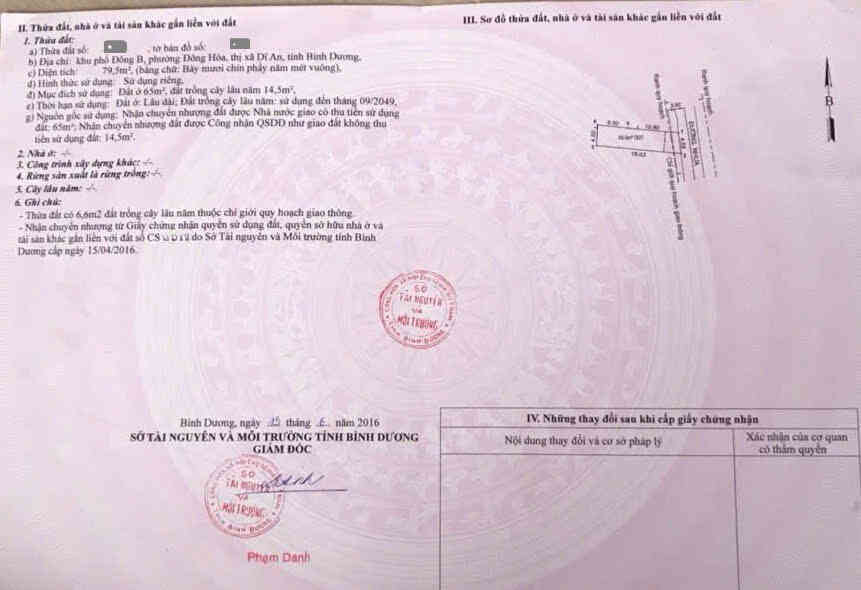 II. Thửa đất, nhà ở và tài sản khác gắn liền với đất
1. Thửa đất:
a) Thửa đất số: , tờ bản đồ số:
b) Địa chỉ: khu phố Đông B, phường Đông Hòa, thị xã Dĩ An, tỉnh Bình Dương,
c) Diện tích: 79,5m², (bằng chữ: Bảy mươi chín phẩy năm mét vuông),
d) Hình thức sử dụng: Sử dụng riêng,
đ) Mục đích sử dụng: Đất ở 65m², đất trồng cây lâu năm 14,5m²,
e) Thời hạn sử dụng: Đất ở: Lâu dài; Đất trồng cây lâu năm: sử dụng đến tháng 09/2049,
g) Nguồn gốc sử dụng: Nhận chuyển nhượng đất được Nhà nước giao có thu tiền sử dụng
đất: 65m²; Nhận chuyển nhượng đất được Công nhận QSDĐ như giao đất không thu
tiền sử dụng đất: 14,5m².
2. Nhà ở: -/-
3. Công trình xây dựng khác: -/-
4. Rừng sản xuất là rừng trồng: -/-
5. Cây lâu năm: -/-
6. Ghi chú:
- Thửa đất có 6,6m2 đất trồng cây lâu năm thuộc chỉ giới quy hoạch giao thông.
- Nhận chuyển nhượng từ Giấy chứng nhận quyền sử dụng đất, quyền sở hữu nhà ở và
tài sản khác gắn liền với đất số CS do Sở Tài nguyên và Môi trường tỉnh Bình
Dương cấp ngày 15/04/2016.
III. Sơ đồ thửa đất, nhà ở và tài sản khác gắn liền với đất
B
ĐƯỜNG NHỰA
Chỉ giới quy hoạch giao thông
SỞ
TÀI NGUYÊN
VÀ
MÔI TRƯỜNG
Bình Dương, ngày tháng 6 năm 2016
SỞ TÀI NGUYÊN VÀ MÔI TRƯỜNG TỈNH BÌNH DƯƠNG
GIÁM ĐỐC
SỞ
TÀI NGUYÊN
VÀ
MÔI TRƯỜNG
Phạm Danh
IV. Những thay đổi sau khi cấp giấy chứng nhận
Nội dung thay đổi và cơ sở pháp lý
Xác nhận của cơ quan
có thẩm quyền